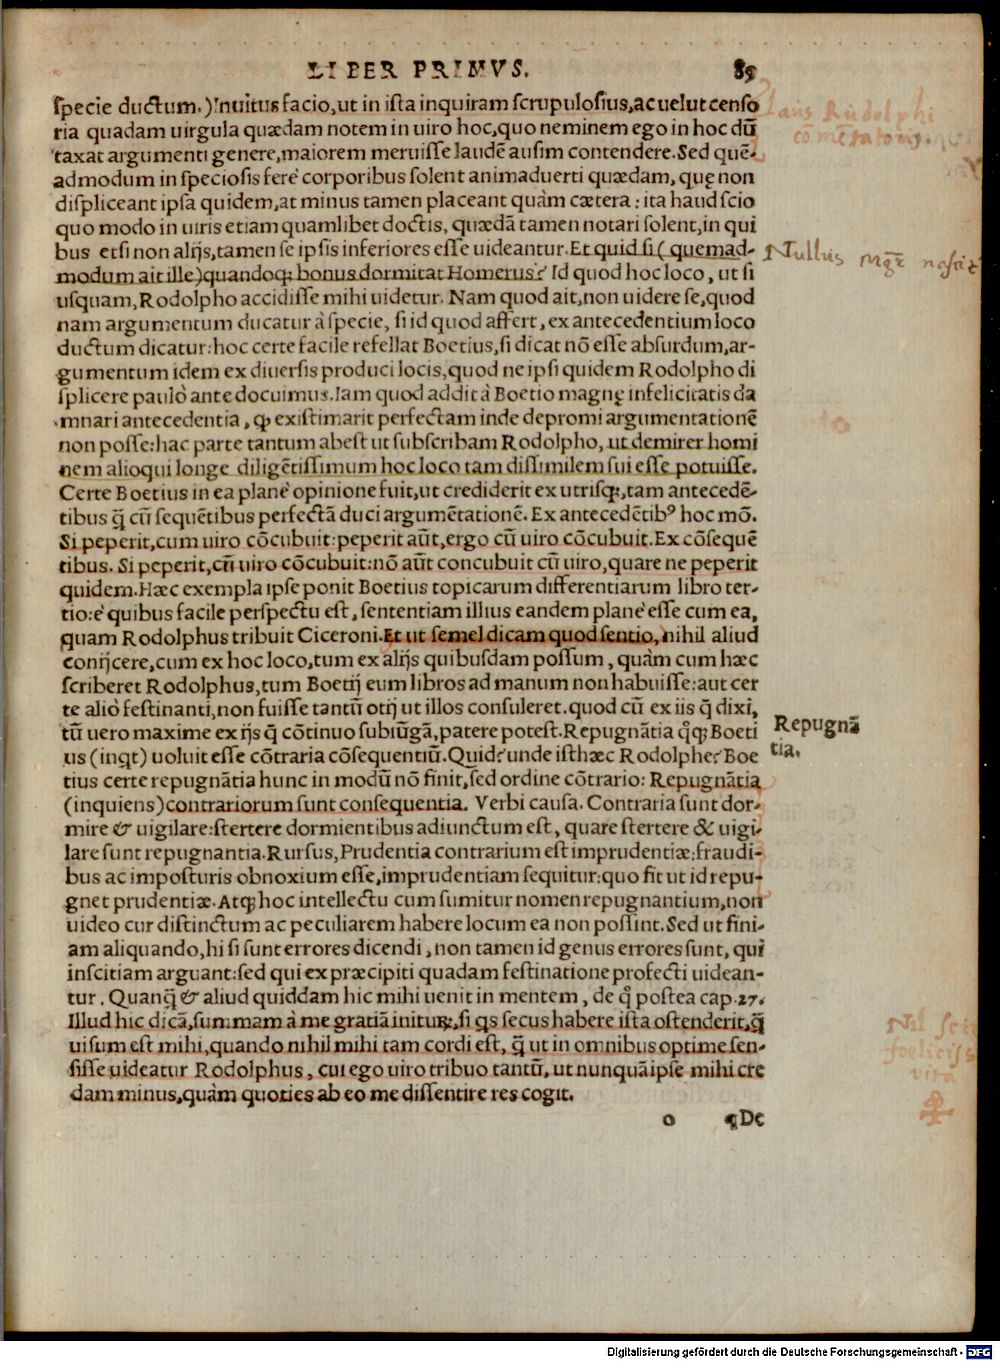 LIBER PRIMVS. 85
specie ductum. Inuitus facio, ut in ista inquiram scrupulosius, ac uelut censo
ria quadam uirgula quædam notem in uiro hoc, quo neminem ego in hoc dũ
taxat argumenti genere, maiorem meruisse laudẽ ausim contendere. Sed quẽ-
admodum in speciosis ferè corporibus solent animaduerti quædam, quę non
displiceant ipsa quidem, at minus tamen placeant quàm cætera: ita haud scio
quo modo in uiris etiam quamlibet doctis, quædã tamen notari solent, in qui
bus etsi non alijs, tamen se ipsis inferiores esse uideantur. Et quid si (quemad-
modum ait ille) quandoq; bonus dormitat Homerus? Id quod hoc loco, ut si
usquam, Rodolpho accidisse mihi uidetur. Nam quod ait, non uidere se, quod
nam argumentum ducatur à specie, si id quod affert, ex antecedentium loco
ductum dicatur: hoc certe facile refellat Boetius, si dicat nõ esse absurdum, ar-
gumentum idem ex diuersis produci locis, quod ne ipsi quidem Rodolpho di
splicere paulò ante docuimus. Iam quod addit à Boetio magnę infelicitatis da
mnari antecedentia, ꝙ existimarit perfectam inde depromi argumentationẽ
non posse: hac parte tantum abest ut subscribam Rodolpho, ut demirer homi
nem alioqui longe diligẽtissimum hoc loco tam dissimilem sui esse potuisse.
Certe Boetius in ea planè opinione fuit, ut crediderit ex utrisq;, tam antecedẽ-
tibus q̃ cũ sequẽtibus perfectã duci argumẽtationẽ. Ex antecedẽtibꝰ hoc mõ.
Si peperit, cum uiro cõcubuit: peperit aũt, ergo cũ uiro cõcubuit. Ex cõsequẽ
tibus. Si peperit, cũ uiro cõcubuit: nõ aũt concubuit cũ uiro, quare ne peperit
quidem. Hæc exempla ipse ponit Boetius topicarum differentiarum libro ter-
tio: è quibus facile perspectu est, sententiam illius eandem planè esse cum ea,
quam Rodolphus tribuit Ciceroni. Et ut semel dicam quod sentio, nihil aliud
conijcere, cum ex hoc loco, tum ex alijs quibusdam possum, quàm cum hæc
scriberet Rodolphus, tum Boetij eum libros ad manum non habuisse: aut cer
te aliò festinanti, non fuisse tantũ otij ut illos consuleret. quod cũ ex iis q̃ dixi,
tũ uero maxime ex ijs q̃ cõtinuo subiũgã, patere potest. Repugnãtia q̃q; Boeti
us (inqt) uoluit esse cõtraria cõsequentiũ. Quid? unde isthæc Rodolphe? Boe
tius certe repugnãtia hunc in modũ nõ finit, sed ordine cõtrario: Repugnãtia
(inquiens) contrariorum sunt consequentia. Verbi causa. Contraria sunt dor-
mire & uigilare: stertere dormientibus adiunctum est, quare stertere & uigi-
lare sunt repugnantia. Rursus, Prudentia contrarium est imprudentiæ: fraudi-
bus ac imposturis obnoxium esse, imprudentiam sequitur: quo fit ut id repu-
gnet prudentiæ. Atq; hoc intellectu cum sumitur nomen repugnantium, non
uideo cur distinctum ac peculiarem habere locum ea non possint. Sed ut fini-
am aliquando, hi si sunt errores dicendi, non tamen id genus errores sunt, qui
inscitiam arguant: sed qui ex præcipiti quadam festinatione profecti uidean-
tur. Quanq̃ & aliud quiddam hic mihi uenit in mentem, de q̃ postea cap. 27.
Illud hic dicã, summam à me gratiã initurꝫ, si qs secus habere ista ostenderit, q̃
uisum est mihi, quando nihil mihi tam cordi est, q̃ ut in omnibus optime sen-
sisse uideatur Rodolphus, cui ego uiro tribuo tantũ, ut nunquã ipse mihi cre
dam minus, quàm quoties ab eo me dissentire res cogit.
o ¶De
Laus Rudolphi
Nullus
Repugnã
tia.
Nil
vita
Digitalisierung gefördert durch die Deutsche Forschungsgemeinschaft - DFG